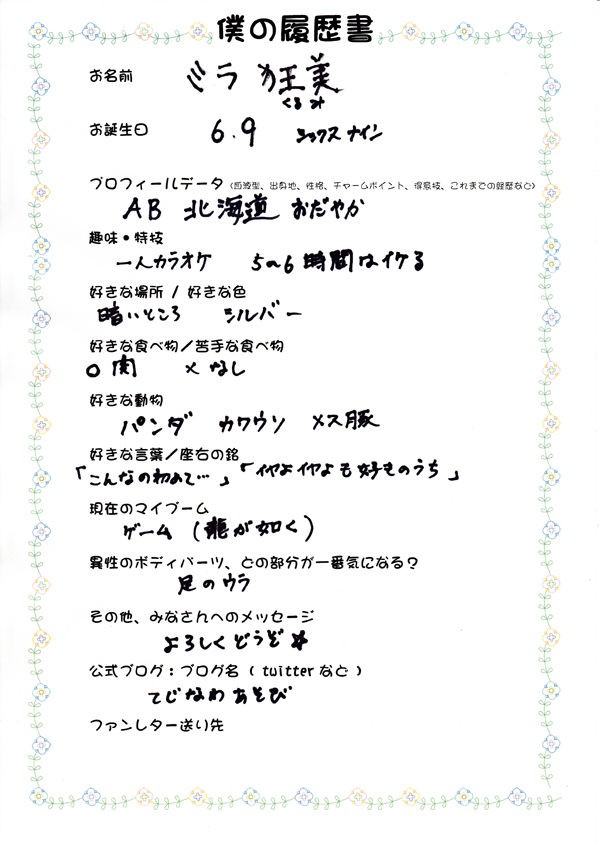 僕の履歴書
お名前 ミラ 狂美
くるみ
お誕生日 6.9 シックスナイン
プロフィールデータ(血液型、出身地、性格、チャームポイント、得意技、これまでの経歴など)
AB 北海道 おだやか
趣味・特技
一人カラオケ 5~6時間はイケる
好きな場所 / 好きな色
暗いところ シルバー
好きな食べ物/苦手な食べ物
○肉 ×なし
好きな動物
パンダ カワウソ メス豚
好きな言葉/座右の銘
「こんなの初めて…」「イヤよイヤよも好きのうち」
現在のマイブーム
ゲーム (龍が如く)
異性のボディパーツ、どの部分が一番気になる?
足のウラ
その他、みなさんへのメッセージ
よろしくどうぞ☆
公式ブログ:ブログ名 ( twitterなど )
てじなわあそび
ファンレター送り先